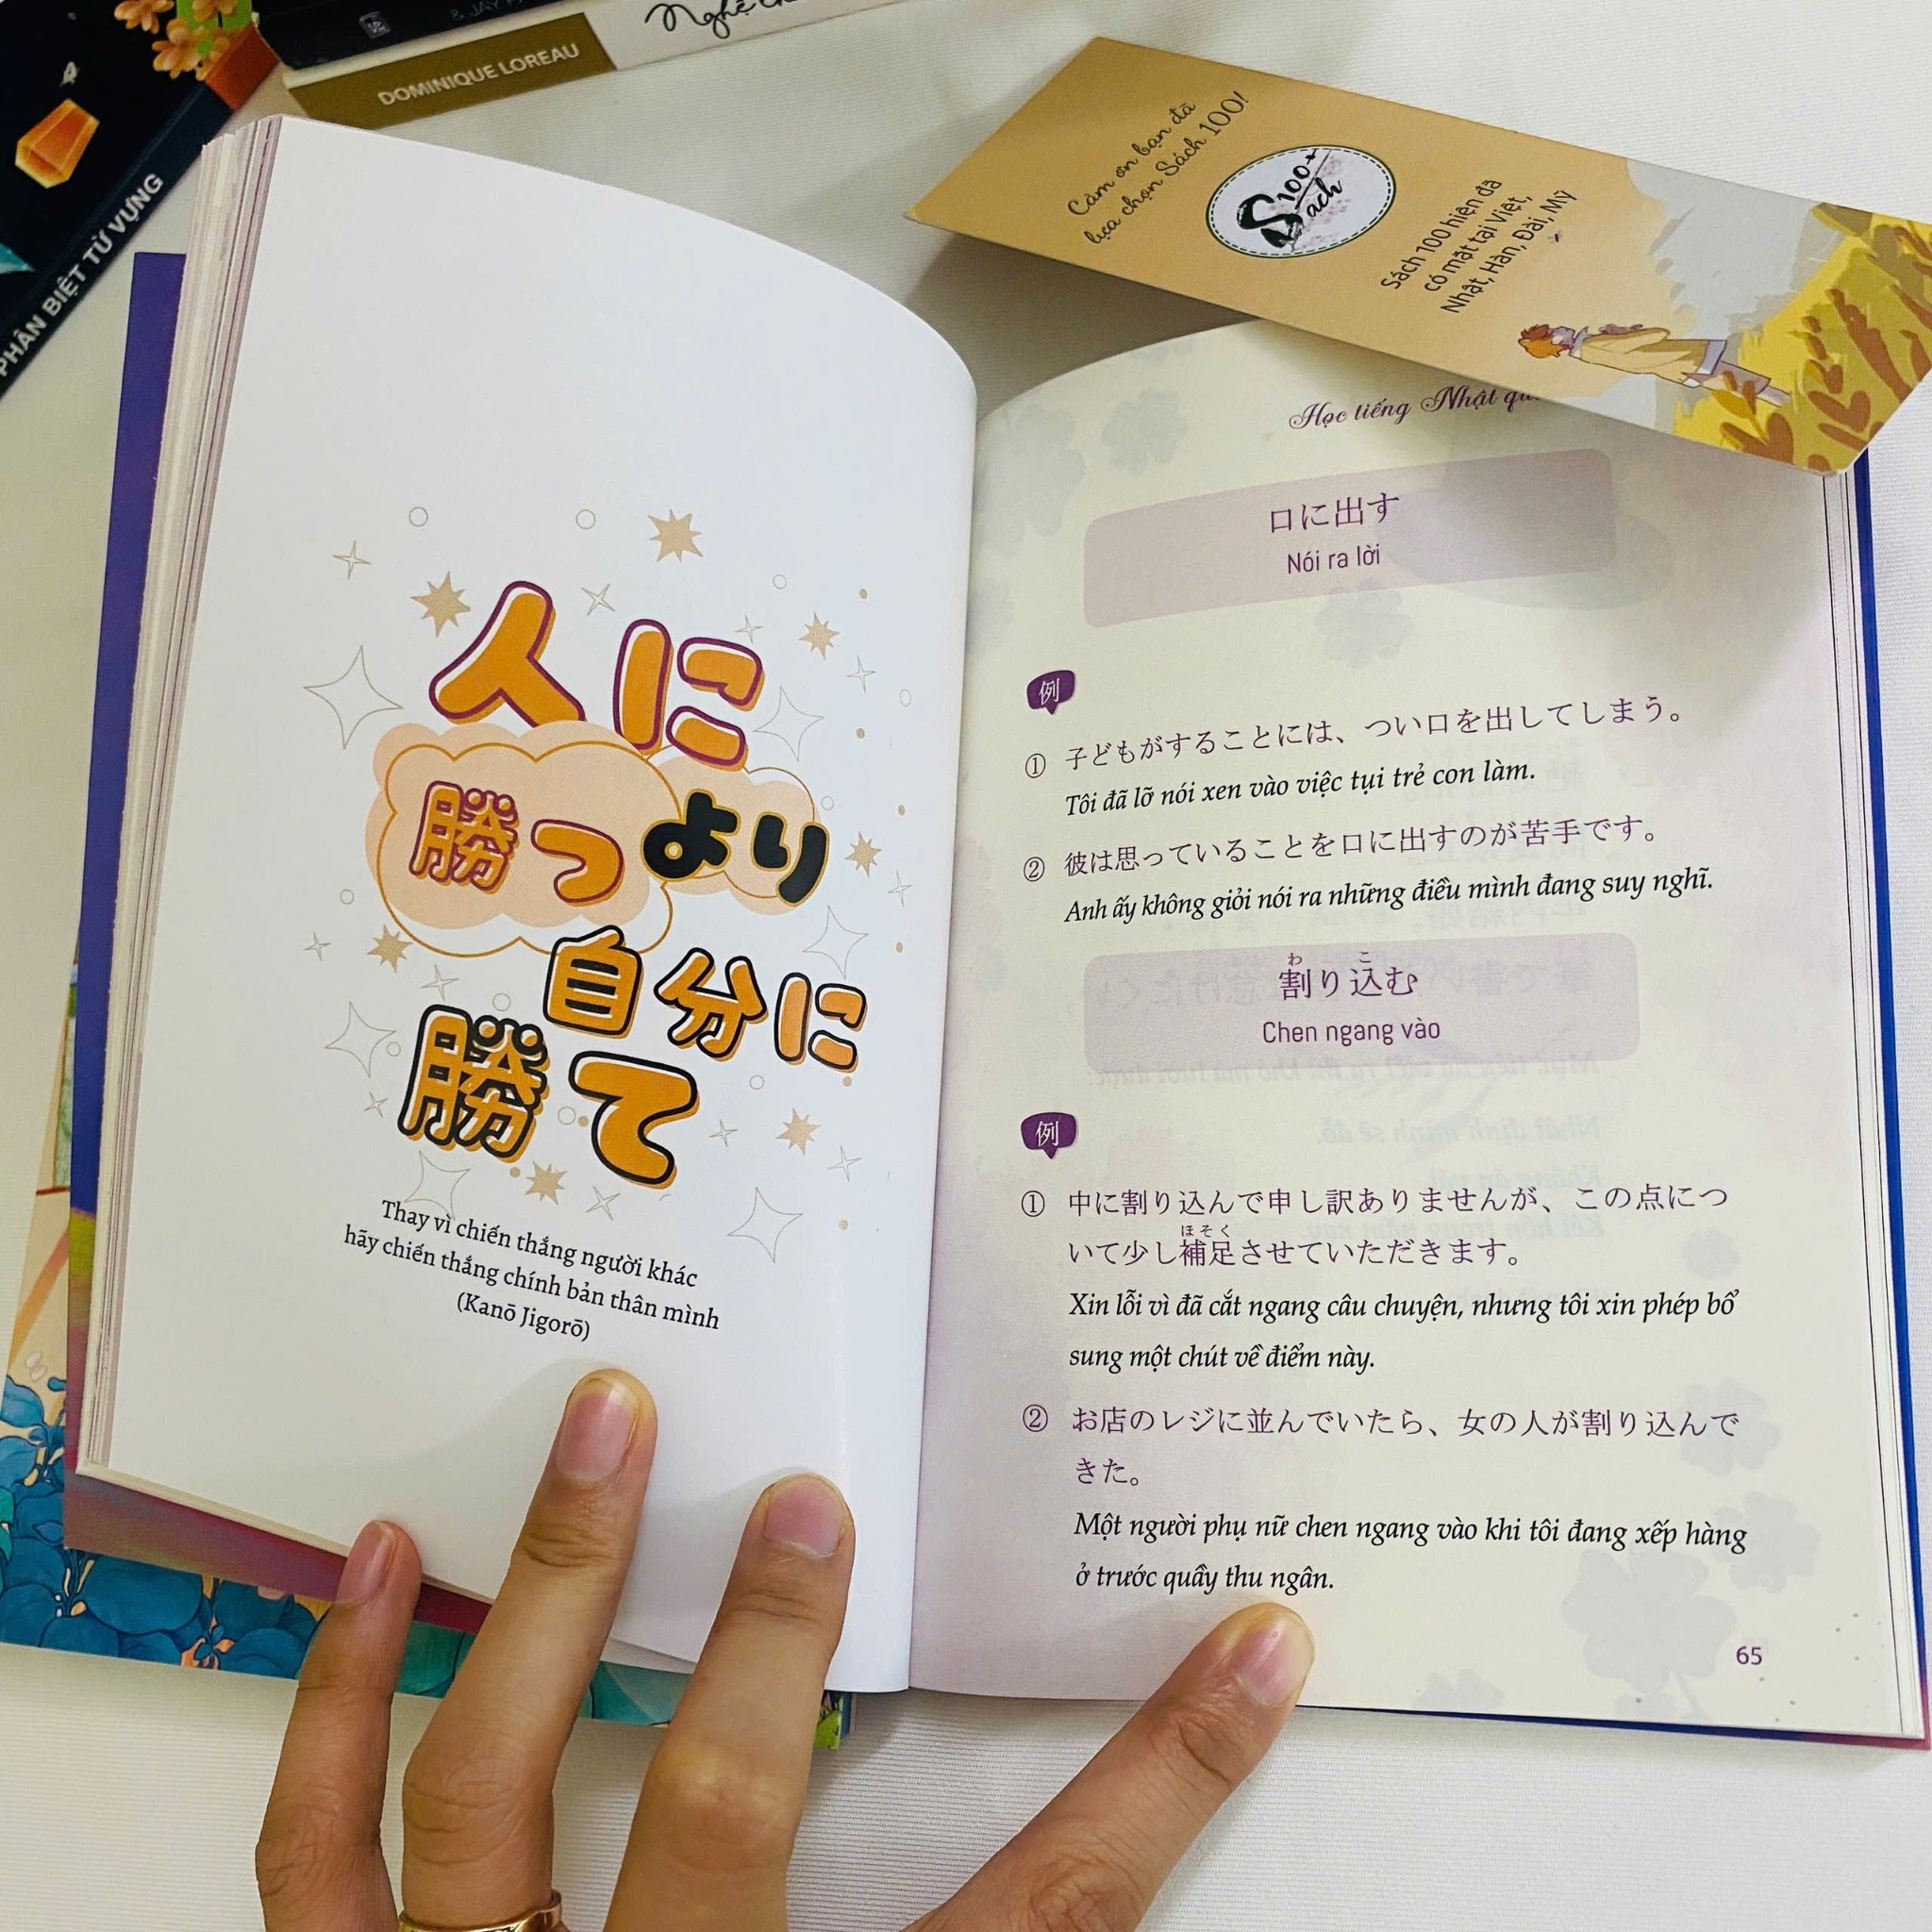 PHÂN BIỆT TỪ VỰNG
DOMINIQUE LOREAU
Cảm ơn bạn đã
lựa chọn Sách 100!
100+
Sach
Sách 100 hiện đã
có mặt tại Việt,
Nhật, Hàn, Đài, Mỹ
人に
勝つより
自分に
勝て
Thay vì chiến thắng người khác
hãy chiến thắng chính bản thân mình
(Kanō Jigorō)
Học tiếng Nhật
口に出す
Nói ra lời
例
① 子どもがすることには、つい口を出してしまう。
Tôi đã lỡ nói xen vào việc tụi trẻ con làm.
② 彼は思っていることを口に出すのが苦手です。
Anh ấy không giỏi nói ra những điều mình đang suy nghĩ.
わ こ
割り込む
Chen ngang vào
例
① 中に割り込んで申し訳ありませんが、この点につ
ほそく
いて少し補足させていただきます。
Xin lỗi vì đã cắt ngang câu chuyện, nhưng tôi xin phép bổ
sung một chút về điểm này.
② お店のレジに並んでいたら、女の人が割り込んで
きた。
Một người phụ nữ chen ngang vào khi tôi đang xếp hàng
ở trước quầy thu ngân.
65